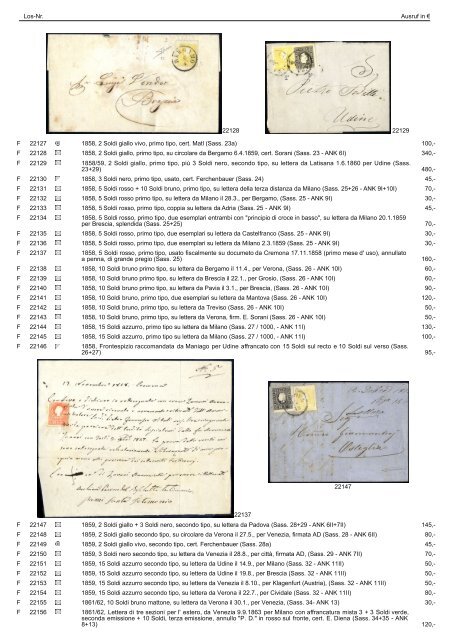 Los-Nr. Ausruf in €
22128 22129
F 22127 1858, 2 Soldi giallo vivo, primo tipo, cert. Matl (Sass. 23a) 100,-
F 22128 1858, 2 Soldi giallo, primo tipo, su circolare da Bergamo 6.4.1859, cert. Sorani (Sass. 23 - ANK 6I) 340,-
F 22129 1858/59, 2 Soldi giallo, primo tipo, più 3 Soldi nero, secondo tipo, su lettera da Latisana 1.6.1860 per Udine (Sass.
23+29) 480,-
F 22130 1858, 3 Soldi nero, primo tipo, usato, cert. Ferchenbauer (Sass. 24) 45,-
F 22131 1858, 5 Soldi rosso + 10 Soldi bruno, primo tipo, su lettera della terza distanza da Milano (Sass. 25+26 - ANK 9I+10I) 70,-
F 22132 1858, 5 Soldi rosso primo tipo, su lettera da Milano il 28.3., per Bergamo, (Sass. 25 - ANK 9I) 30,-
F 22133 1858, 5 Soldi rosso, primo tipo, coppia su lettera da Adria (Sass. 25 - ANK 9I) 45,-
F 22134 1858, 5 Soldi rosso, primo tipo, due esemplari entrambi con "principio di croce in basso", su lettera da Milano 20.1.1859
per Brescia, splendida (Sass. 25+25) 70,-
F 22135 1858, 5 Soldi rosso, primo tipo, due esemplari su lettera da Castelfranco (Sass. 25 - ANK 9I) 30,-
F 22136 1858, 5 Soldi rosso, primo tipo, due esemplari su lettera da Milano 2.3.1859 (Sass. 25 - ANK 9I) 30,-
F 22137 1858, 5 Soldi rosso, primo tipo, usato fiscalmente su documeto da Cremona 17.11.1858 (primo mese d' uso), annullato
a penna, di grande pregio (Sass. 25) 160,-
F 22138 1858, 10 Soldi bruno primo tipo, su lettera da Bergamo il 11.4., per Verona, (Sass. 26 - ANK 10I) 60,-
F 22139 1858, 10 Soldi bruno primo tipo, su lettera da Brescia il 22.1., per Grosio, (Sass. 26 - ANK 10I) 60,-
F 22140 1858, 10 Soldi bruno primo tipo, su lettera da Pavia il 3.1., per Brescia, (Sass. 26 - ANK 10I) 90,-
F 22141 1858, 10 Soldi bruno primo tipo, due esemplari su lettera da Mantova (Sass. 26 - ANK 10I) 120,-
F 22142 1858, 10 Soldi bruno, primo tipo, su lettera da Treviso (Sass. 26 - ANK 10I) 50,-
F 22143 1858, 10 Soldi bruno, primo tipo, su lettera da Verona, firm. E. Sorani (Sass. 26 - ANK 10I) 50,-
F 22144 1858, 15 Soldi azzurro, primo tipo su lettera da Milano (Sass. 27 / 1000, - ANK 11I) 130,-
F 22145 1858, 15 Soldi azzurro, primo tipo, su lettera da Milano, (Sass. 27 / 1000. - ANK 11I) 100,-
F 22146 1858, Frontespizio raccomandata da Maniago per Udine affrancato con 15 Soldi sul recto e 10 Soldi sul verso (Sass.
26+27) 95,-
22147
22137
F 22147 1859, 2 Soldi giallo + 3 Soldi nero, secondo tipo, su lettera da Padova (Sass. 28+29 - ANK 6II+7II) 145,-
F 22148 1859, 2 Soldi giallo secondo tipo, su circolare da Verona il 27.5., per Venezia, firmata AD (Sass. 28 - ANK 6II) 80,-
F 22149 1859, 2 Soldi giallo vivo, secondo tipo, cert. Ferchenbauer (Sass. 28a) 45,-
F 22150 1859, 3 Soldi nero secondo tipo, su lettera da Venezia il 28.8., per città, firmata AD, (Sass. 29 - ANK 7II) 70,-
F 22151 1859, 15 Soldi azzurro secondo tipo, su lettera da Udine il 14.9., per Milano (Sass. 32 - ANK 11II) 50,-
F 22152 1859, 15 Soldi azzurro secondo tipo, su lettera da Udine il 19.8., per Brescia, (Sass. 32 - ANK 11II) 50,-
F 22153 1859, 15 Soldi azzurro secondo tipo, su lettera da Venezia il 8.10., per Klagenfurt (Austria), (Sass. 32 - ANK 11II) 50,-
F 22154 1859, 15 Soldi azzurro secondo tipo, su lettera da Verona il 22.7., per Cividale (Sass. 32 - ANK 11II) 80,-
F 22155 1861/62, 10 Soldi bruno mattone, su lettera da Verona il 30.1., per Venezia, (Sass. 34- ANK 13) 30,-
F 22156 1861/62, Lettera di tre sezioni per l' estero, da Venezia 9.9.1863 per Milano con affrancatura mista 3 + 3 Soldi verde,
seconda emissione + 10 Soldi, terza emissione, annullo "P. D." in rosso sul fronte, cert. E. Diena (Sass. 34+35 - ANK
8+13) 120,-